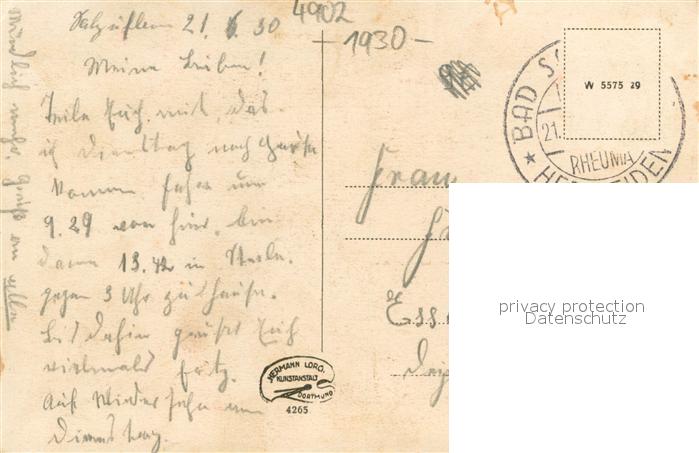 Salzuflen 21. 6. 30
Meine Lieben!
Teile Euch mit, das
ich Dienstag nach Hause
komme fahre um
9.29 von hier, bin
dann 13.42 in Steele.
gegen 3 Uhr zu Hause.
Bis dahin grüßt Euch
vielmals Fritz.
Auf Wiedersehn am
Dienstag.
Mündlich mehr. Gruß an alle
4902
1930-
BAD S
21.
RHEUMA
HE EIDEN
W 5575 29
Frau
Ess
HERMANN LORCH
KUNSTANSTALT
DORTMUND
4265
privacy protection
Datenschutz